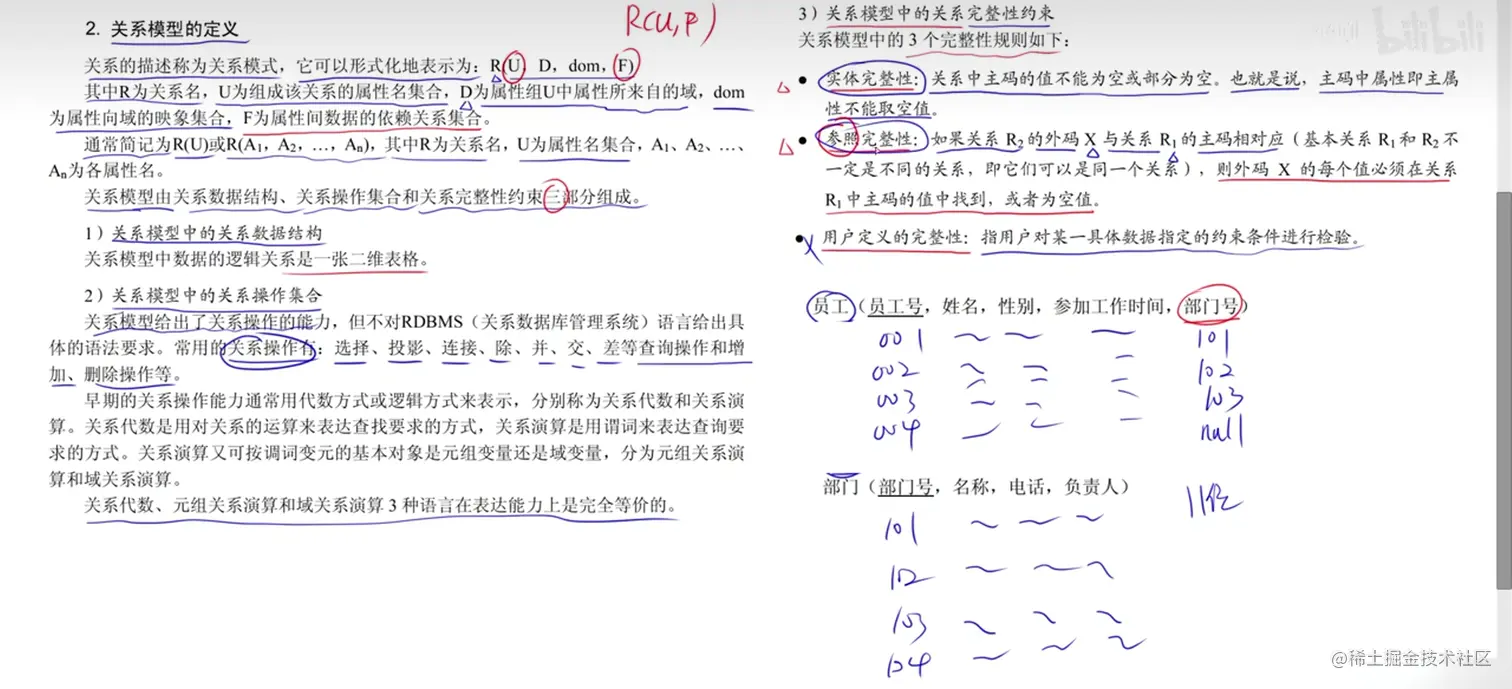 R(U,F)
2. 关系模型的定义
关系的描述称为关系模式，它可以形式化地表示为：R(U，D，dom，F)
其中R为关系名，U为组成该关系的属性名集合，D为属性组U中属性所来自的域，dom
为属性向域的映象集合，F为属性间数据的依赖关系集合。
通常简记为R(U)或R(A₁，A₂，…，Aₙ)，其中R为关系名，U为属性名集合，A₁、A₂、…、
Aₙ为各属性名。
关系模型由关系数据结构、关系操作集合和关系完整性约束三部分组成。
1）关系模型中的关系数据结构
关系模型中数据的逻辑关系是一张二维表格。
2）关系模型中的关系操作集合
关系模型给出了关系操作的能力，但不对RDBMS（关系数据库管理系统）语言给出具
体的语法要求。常用的关系操作有：选择、投影、连接、除、并、交、差等查询操作和增
加、删除操作等。
早期的关系操作能力通常用代数方式或逻辑方式来表示，分别称为关系代数和关系演
算。关系代数是用对关系的运算来表达查找要求的方式，关系演算是用谓词来表达查询要
求的方式。关系演算又可按调词变元的基本对象是元组变量还是域变量，分为元组关系演
算和域关系演算。
关系代数、元组关系演算和域关系演算 3 种语言在表达能力上是完全等价的。
3）关系模型中的关系完整性约束
关系模型中的 3 个完整性规则如下：
● 实体完整性：关系中主码的值不能为空或部分为空。也就是说，主码中属性即主属
性不能取空值。
● 参照完整性：如果关系 R₂ 的外码 X 与关系 R₁ 的主码相对应（基本关系 R₁ 和 R₂ 不
一定是不同的关系，即它们可以是同一个关系），则外码 X 的每个值必须在关系
R₁ 中主码的值中找到，或者为空值。
● 用户定义的完整性：指用户对某一具体数据指定的约束条件进行检验。
员工（员工号，姓名，性别，参加工作时间，部门号）
001 101
002 102
003 103
004 null
部门（部门号，名称，电话，负责人）
101
102
103
104
bilibili
@稀土掘金技术社区